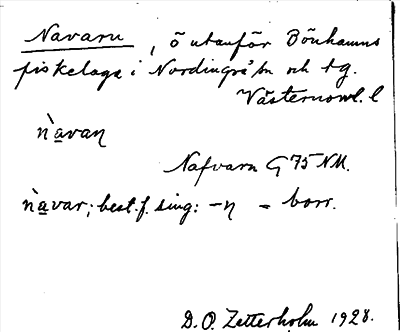 Navarn, ö utanför Bönhamns
fiskeläge i Nordingrå sn och tg.
Västernorrl. l
nàvaŋ
Nafvarn G 75 NM.
nàvar; best. f. sing: -ŋ = borr.
D. O. Zetterholm 1928.